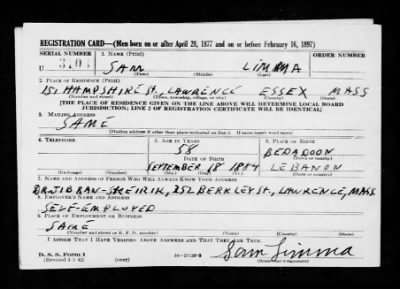 REGISTRATION CARD—(Men born on or after April 28, 1877 and on or before February 16, 1897)
SERIAL NUMBER 1. NAME (Print) ORDER NUMBER
U SAM LIMMA
(First) (Middle) (Last)
2. PLACE OF RESIDENCE (Print)
151 HAMPSHIRE St., LAWRENCE ESSEX MASS
(Number and street) (Town, township, village, or city) (County) (State)
[THE PLACE OF RESIDENCE GIVEN ON THE LINE ABOVE WILL DETERMINE LOCAL BOARD
JURISDICTION; LINE 2 OF REGISTRATION CERTIFICATE WILL BE IDENTICAL]
3. MAILING ADDRESS
SAME
(Mailing address if other than place indicated on line 2. If same insert word same)
4. TELEPHONE 5. AGE IN YEARS 6. PLACE OF BIRTH
58 BEDADOON
DATE OF BIRTH (Town or county)
SEPTEMBER 18 1884 LEBANON
(Mo.) (Day) (Yr.) (State or country)
7. NAME AND ADDRESS OF PERSON WHO WILL ALWAYS KNOW YOUR ADDRESS
252 BERKLEY ST., LAWRENCE, MASS
8. EMPLOYER'S NAME AND ADDRESS
SELF-EMPLOYED
9. PLACE OF EMPLOYMENT OR BUSINESS
SAME
(Number and street or R. F. D. number) (Town) (County) (State)
I AFFIRM THAT I HAVE VERIFIED ABOVE ANSWERS AND THAT THEY ARE TRUE.
D. S. S. Form 1 Sam Limma
(Revised 4-1-42) (over)